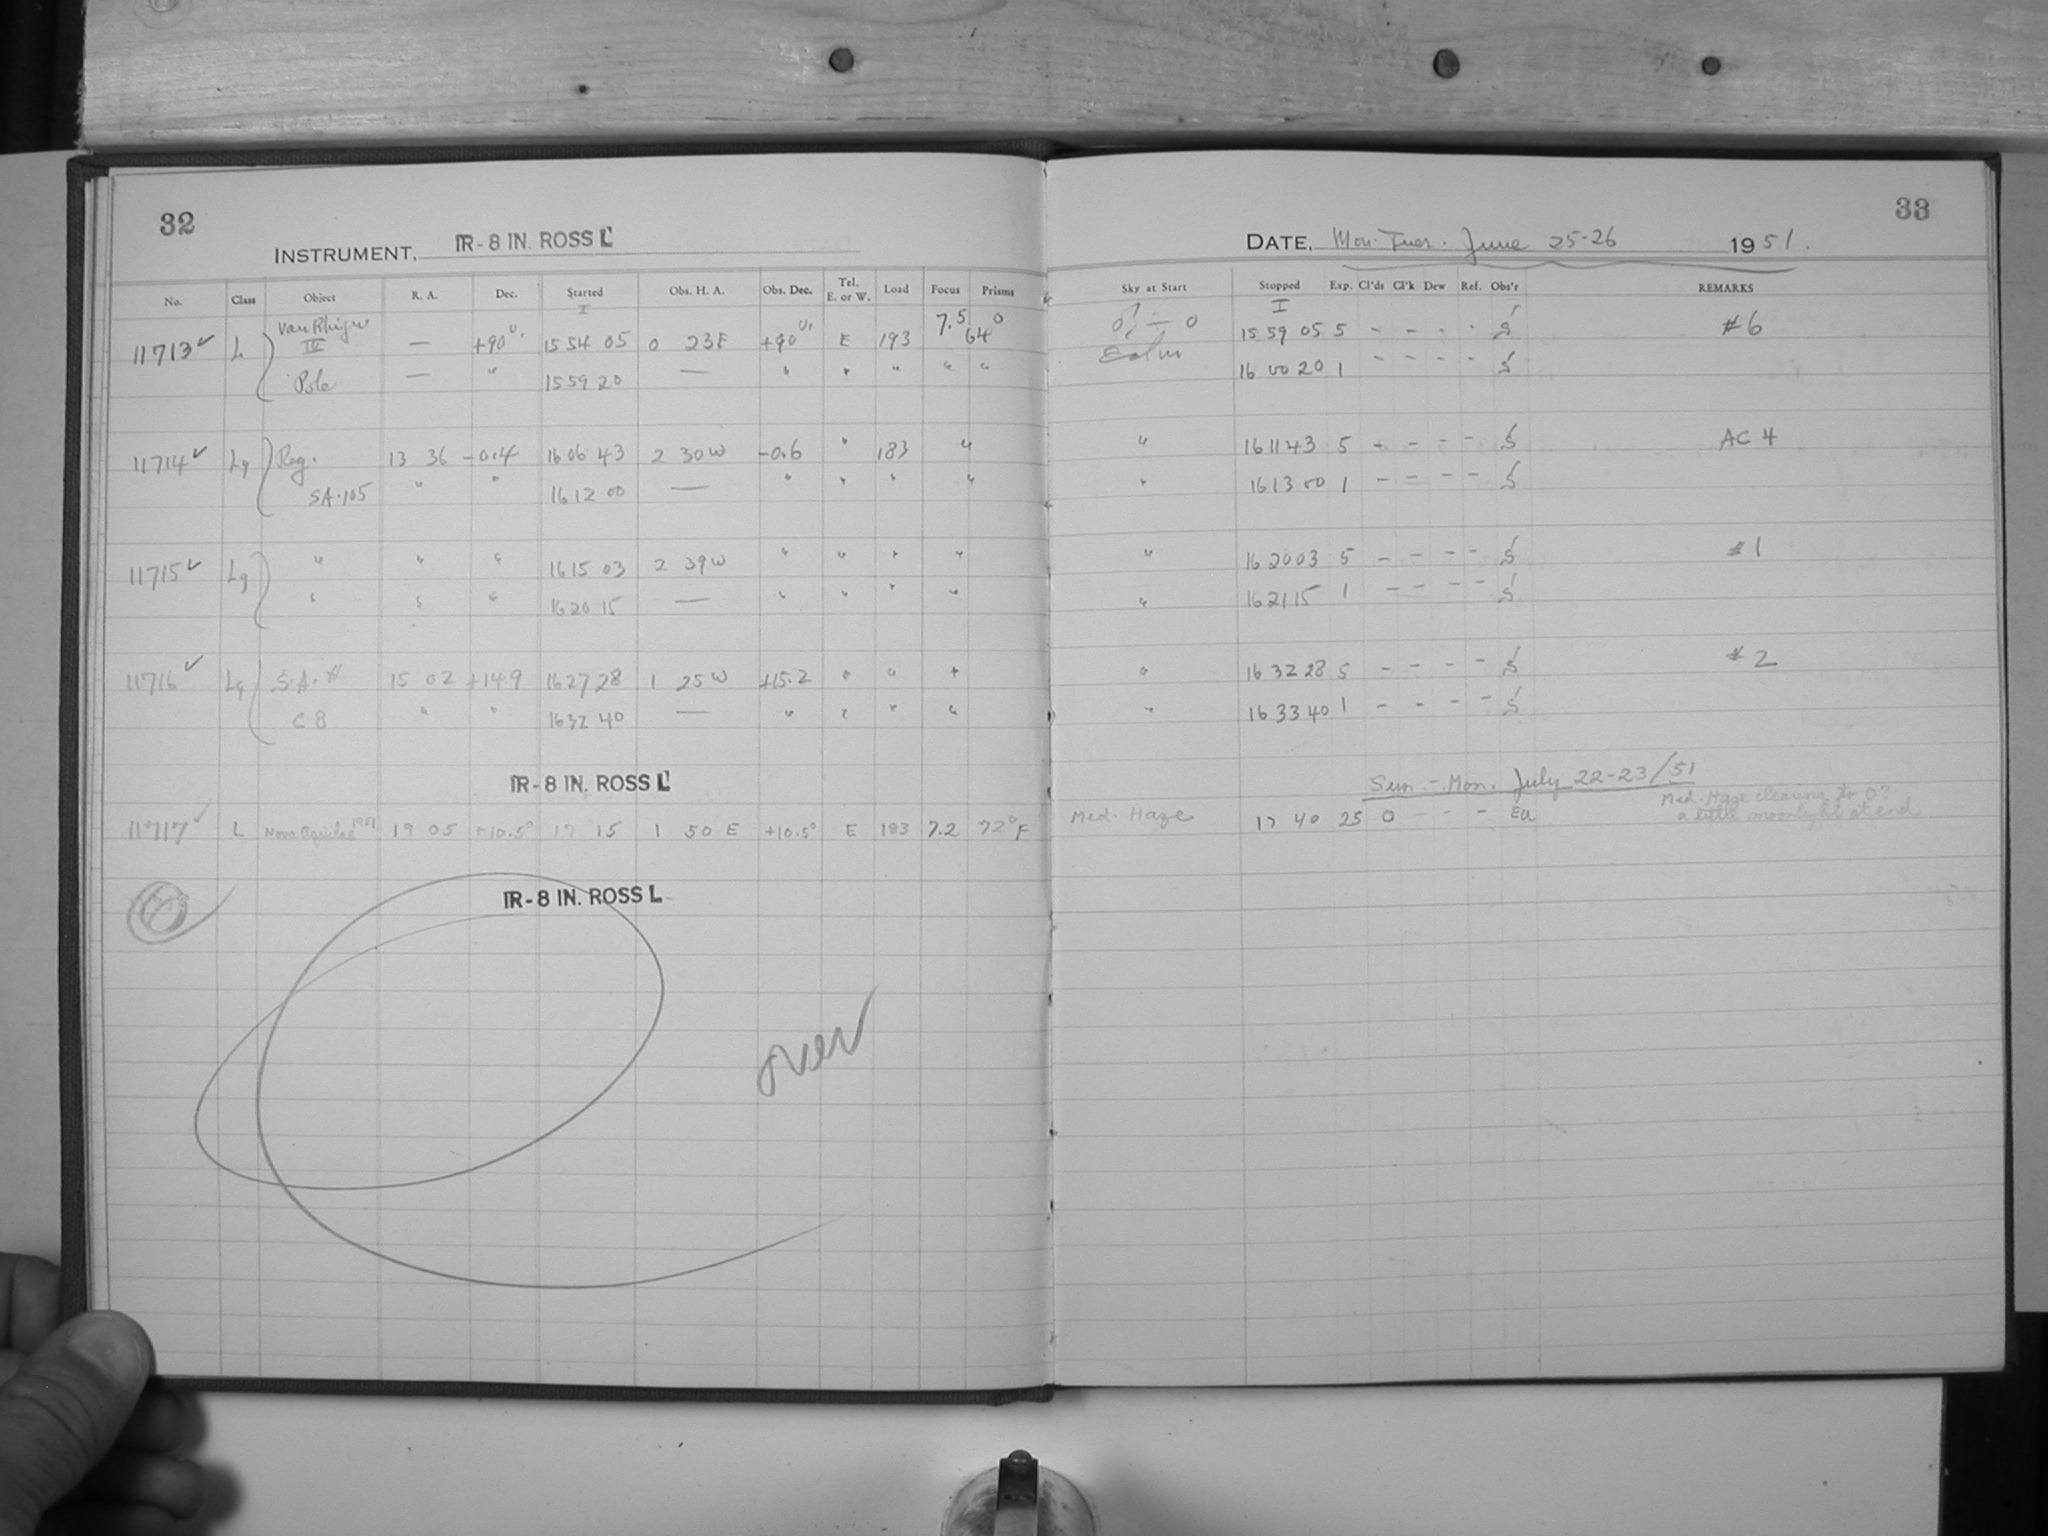 32
INSTRUMENT, IR-8 IN. ROSS L
No. Class Object R. A. Dec. Started Obs. H. A. Obs. Dec. Tel. E. or W. Load Focus Prisms
I
11713 ✓ L Van Rhijn IV — +90° 15 54 05 0 23 E +90° E 193 7.5 64°
Pole — " 15 59 20 — " " " " "
11714 ✓ Lg Reg. 13 36 -0.4 16 06 43 2 30 W -0.6 " 183 "
SA.105 " " 16 12 00 — " " " "
11715 ✓ Lg " " " 16 15 03 2 39 W " " " "
" " " 16 20 15 — " " " "
11716 ✓ Lg S.A. # 15 02 +14.9 16 27 28 1 25 W +15.2 " " "
C 8 " " 16 32 40 — " " " "
IR-8 IN. ROSS L
11717 ✓ L Nova Aquilae 1951 19 05 +10.5° 17 15 1 50 E +10.5° E 183 7.2 72°F
IR-8 IN. ROSS L
over
33
DATE, Mon. Tues. June 25-26 1951.
Sky at Start Stopped Exp. Cl'ds Cl'k Dew Ref. Obs'r REMARKS
I
15 59 05 5 - - - - S #6
Calm 16 00 20 1 - - - - S
" 16 11 43 5 - - - - S AC 4
" 16 13 00 1 - - - - S
" 16 20 03 5 - - - - S #1
" 16 21 15 1 - - - - S
" 16 32 28 5 - - - - S #2
" 16 33 40 1 - - - - S
Sun.-Mon. July 22-23/51
Med. Haze 17 40 25 0 - - - Ea Med. Haze clearing to 0?
a little moonlight at end